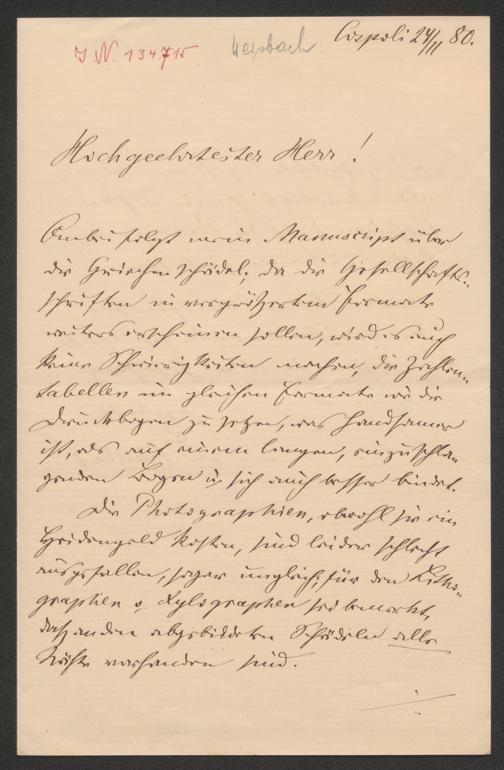 I. N. 134.715
Weisbach
Cospoli 24/11 80.
Hochgeehrtester Herr!
Anbei folgt mein Manuscript über
die Griechenschädel; da die Gesellschafts-
schriften in vergrößertem Formate
weiters erscheinen sollen, wird es auch
keine Schwierigkeiten machen, die Zahlen-
tabellen im gleichen Formate wie die
Druckbogen zu setzen, was handsamer
ist, als auf einem langen, einzuschla-
genden Bogen u. sich auch besser bindet.
Die Photographien, obwohl sie ein
Heidengeld kosten, sind leider schlecht
ausgefallen, sogar ungleich; für den Litho-
graphen o. Xylographen sei bemerkt,
daß an den abgebildeten Schädeln alle
Nähte vorhanden sind.
./.